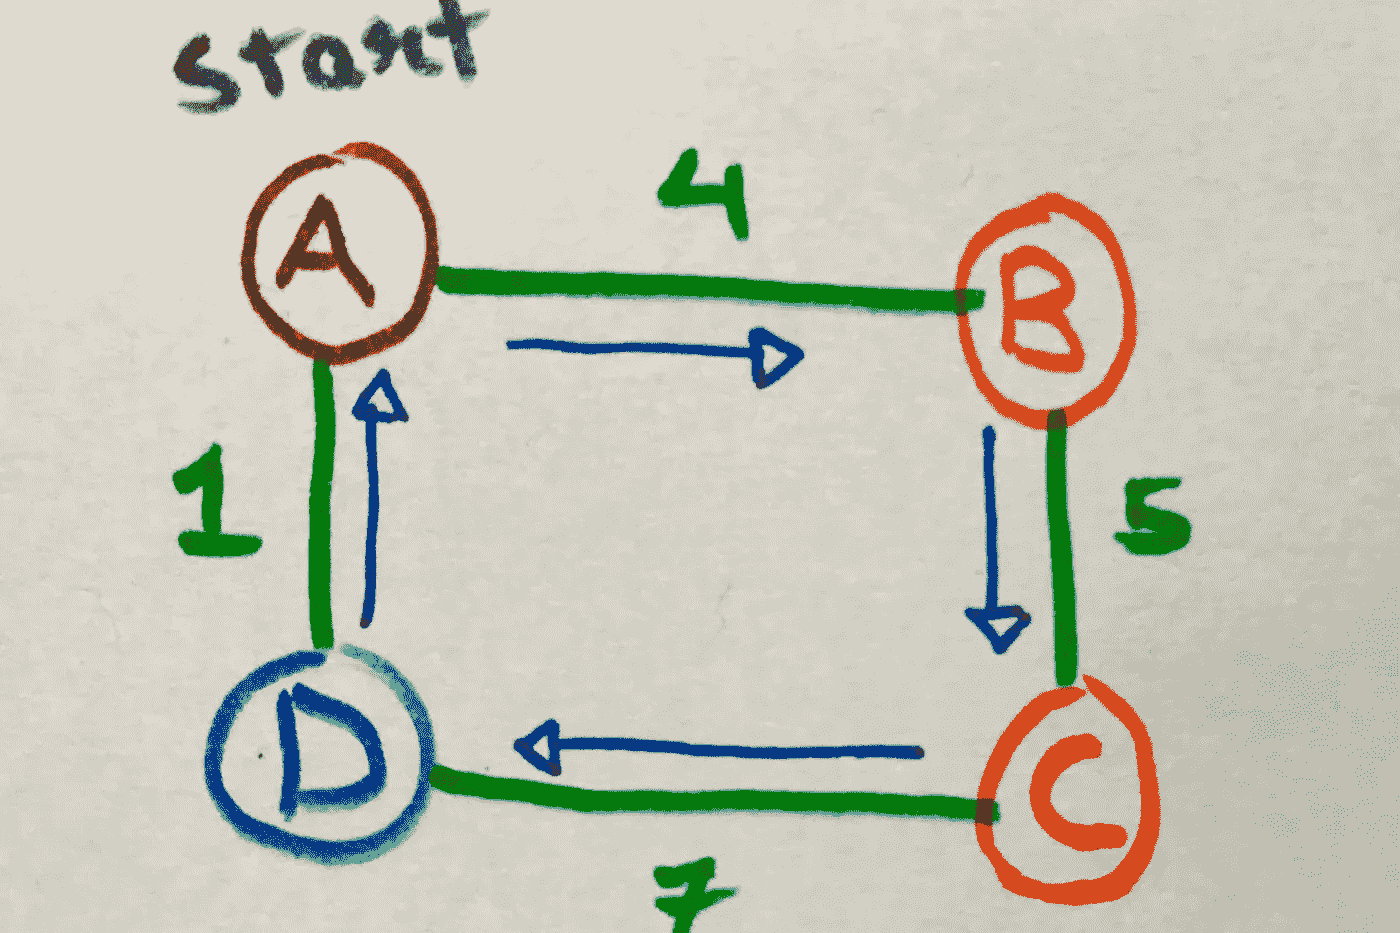 Start
A
4
B
1
5
D
C
7